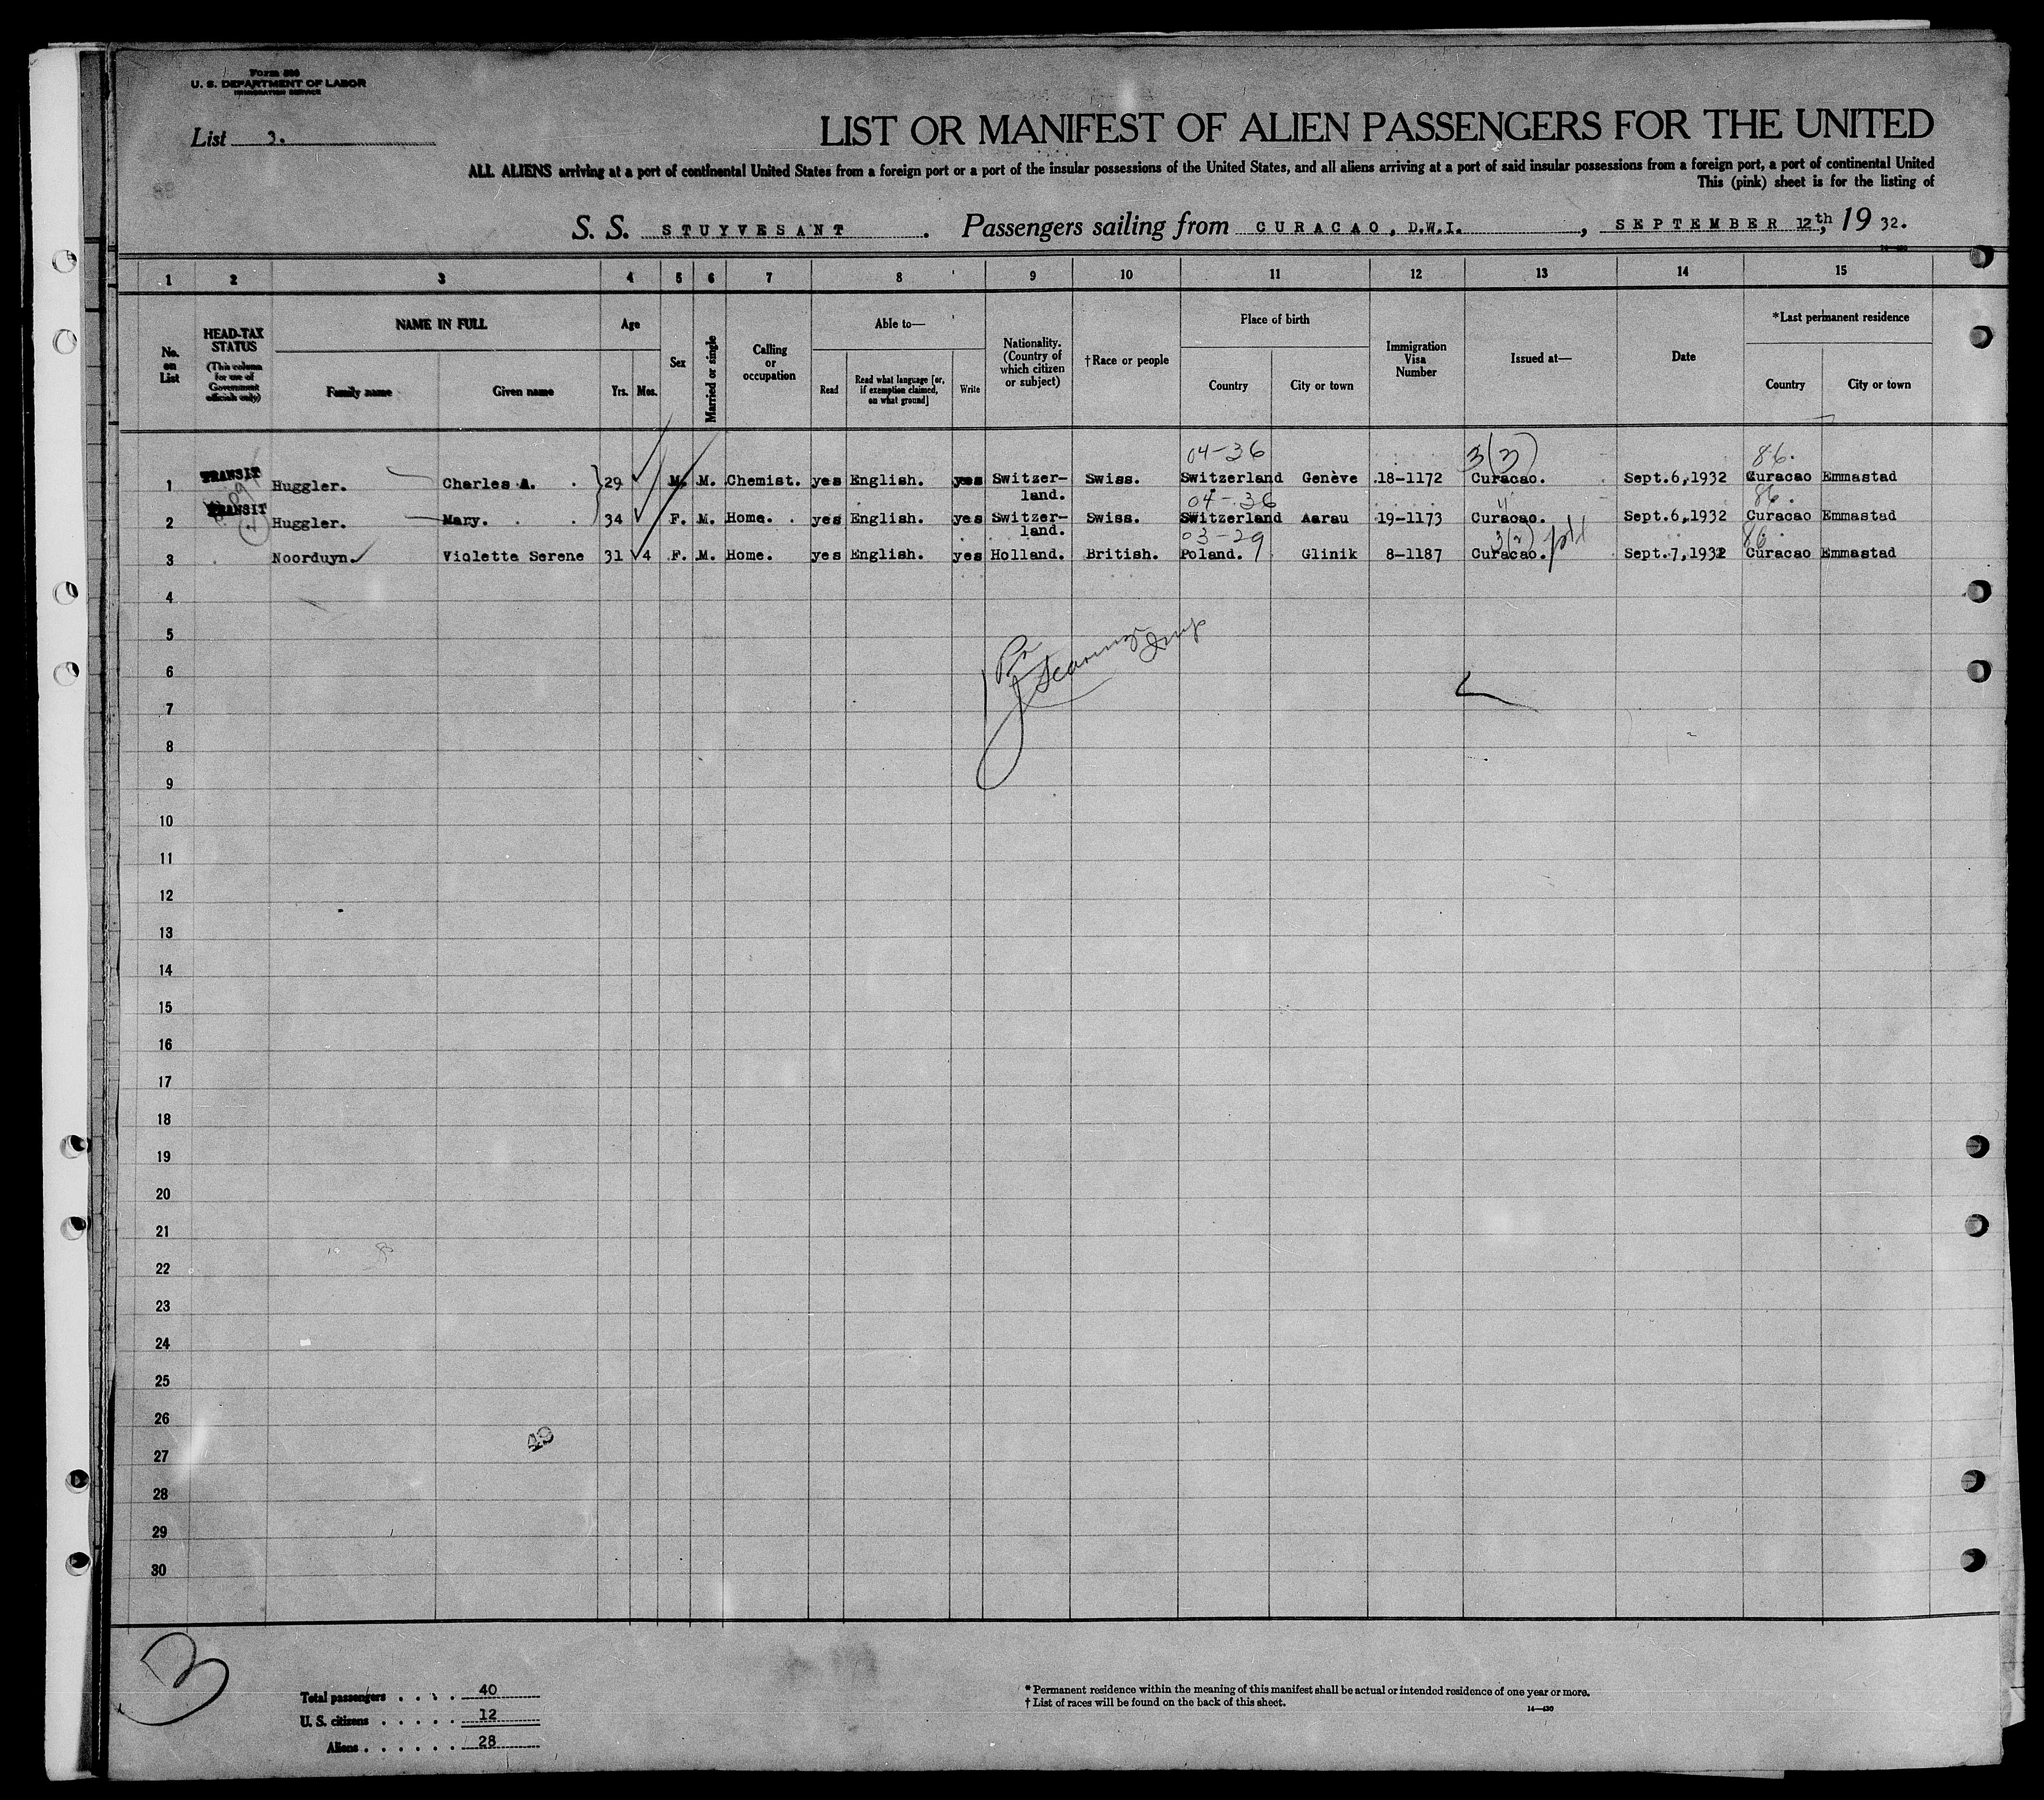 Form 500
U. S. DEPARTMENT OF LABOR
IMMIGRATION SERVICE
List 3.
LIST OR MANIFEST OF ALIEN PASSENGERS FOR THE UNITED
ALL ALIENS arriving at a port of continental United States from a foreign port or a port of the insular possessions of the United States, and all aliens arriving at a port of said insular possessions from a foreign port, a port of continental United
This (pink) sheet is for the listing of
S. S. STUYVESANT . Passengers sailing from CURACAO, D.W.I. , SEPTEMBER 12th, 19 32.
1 2 3 4 5 6 7 8 9 10 11 12 13 14 15
No. on List
HEAD-TAX STATUS (This column for use of Government officials only)
NAME IN FULL
Family name Given name
Age
Yrs. Mos.
Sex
Married or single
Calling or occupation
Able to—
Read
Read what language [or, if exemption claimed, on what ground]
Write
Nationality. (Country of which citizen or subject)
†Race or people
Place of birth
Country City or town
Immigration Visa Number
Issued at—
Date
*Last permanent residence
Country City or town
04-36 3(2) 86.
1 TRANSIT Huggler. Charles A. 29 M. M. Chemist. yes English. yes Switzer-land. Swiss. Switzerland Genève 18-1172 Curacao. Sept.6,1932 Curacao Emmastad
04-36 11 86.
2 TRANSIT Huggler. Mary. 34 F. M. Home. yes English. yes Switzer-land. Swiss. Switzerland Aarau 19-1173 Curacao. Sept.6,1932 Curacao Emmastad
03-29 3(2) 86.
3 Noorduyn. Violetta Serene 31 4 F. M. Home. yes English. yes Holland. British. Poland. Glinik 8-1187 Curacao. Sept.7,1932 Curacao Emmastad
4
5
6
7
8
9
10
11
12
13
14
15
16
17
18
19
20
21
22
23
24
25
26
27
28
29
30
49
3
Total passengers . . . . 40
U. S. citizens . . . . . 12
Aliens . . . . . . 28
* Permanent residence within the meaning of this manifest shall be actual or intended residence of one year or more.
† List of races will be found on the back of this sheet.
14—430